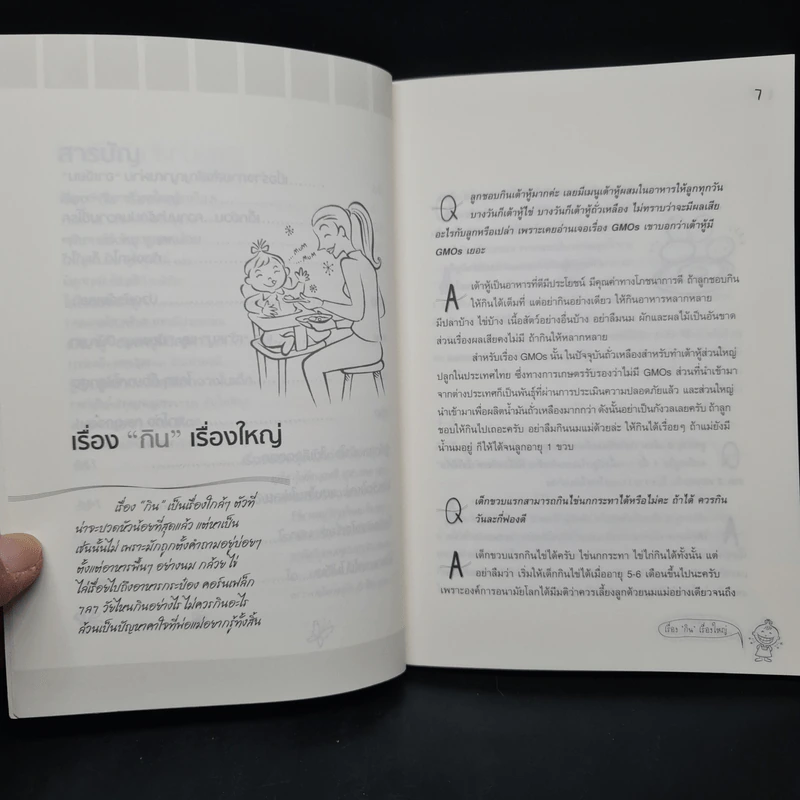 MUM
MUM
เรื่อง "กิน" เรื่องใหญ่
เรื่อง "กิน" เป็นเรื่องใกล้ๆ ตัวที่
น่าจะปวดหัวน้อยที่สุดแล้ว แต่หาเป็น
เช่นนั้นไม่ เพราะมักถูกตั้งคำถามอยู่บ่อยๆ
ตั้งแต่อาหารพื้นๆ อย่างนม กล้วย ไข่
ไล่เรื่อยไปถึงอาหารกระป๋อง คอร์นเฟล็ก
ฯลฯ วัยไหนกินอย่างไร ไม่ควรกินอะไร
ล้วนเป็นปัญหาคาใจที่พ่อแม่อยากรู้ทั้งสิ้น
7
Q ลูกชอบกินเต้าหู้มากค่ะ เลยมีเมนูเต้าหู้ผสมในอาหารให้ลูกทุกวัน
บางวันก็เต้าหู้ไข่ บางวันก็เต้าหู้ถั่วเหลือง ไม่ทราบว่าจะมีผลเสีย
อะไรกับลูกหรือเปล่า เพราะเคยอ่านเจอเรื่อง GMOs เขาบอกว่าเต้าหู้มี
GMOs เยอะ
A เต้าหู้เป็นอาหารที่ดีมีประโยชน์ มีคุณค่าทางโภชนาการดี ถ้าลูกชอบกิน
ให้กินได้เต็มที่ แต่อย่ากินอย่างเดียว ให้กินอาหารหลากหลาย
มีปลาบ้าง ไข่บ้าง เนื้อสัตว์อย่างอื่นบ้าง อย่าลืมนม ผักและผลไม้เป็นอันขาด
ส่วนเรื่องผลเสียคงไม่มี ถ้ากินให้หลากหลาย
สำหรับเรื่อง GMOs นั้น ในปัจจุบันถั่วเหลืองสำหรับทำเต้าหู้ส่วนใหญ่
ปลูกในประเทศไทย ซึ่งทางการเกษตรรับรองว่าไม่มี GMOs ส่วนที่นำเข้ามา
จากต่างประเทศก็เป็นพันธุ์ที่ผ่านการประเมินความปลอดภัยแล้ว และส่วนใหญ่
นำเข้ามาเพื่อผลิตน้ำมันถั่วเหลืองมากกว่า ดังนั้นอย่าเป็นกังวลเลยครับ ถ้าลูก
ชอบให้กินไปเถอะครับ อย่าลืมกินนมแม่ด้วยล่ะ ให้กินได้เรื่อยๆ ถ้าแม่ยังมี
น้ำนมอยู่ ก็ให้ได้จนลูกอายุ 1 ขวบ
Q เด็กขวบแรกสามารถกินไข่นกกระทาได้หรือไม่คะ ถ้าได้ ควรกิน
วันละกี่ฟองดี
A เด็กขวบแรกกินไข่ได้ครับ ไข่นกกระทา ไข่ไก่กินได้ทั้งนั้น แต่
อย่าลืมว่า เริ่มให้เด็กกินไข่ได้เมื่ออายุ 5-6 เดือนขึ้นไปนะครับ
เพราะองค์การอนามัยโลกได้มีมติว่าควรเลี้ยงลูกด้วยนมแม่อย่างเดียวจนถึง
เรื่อง "กิน" เรื่องใหญ่